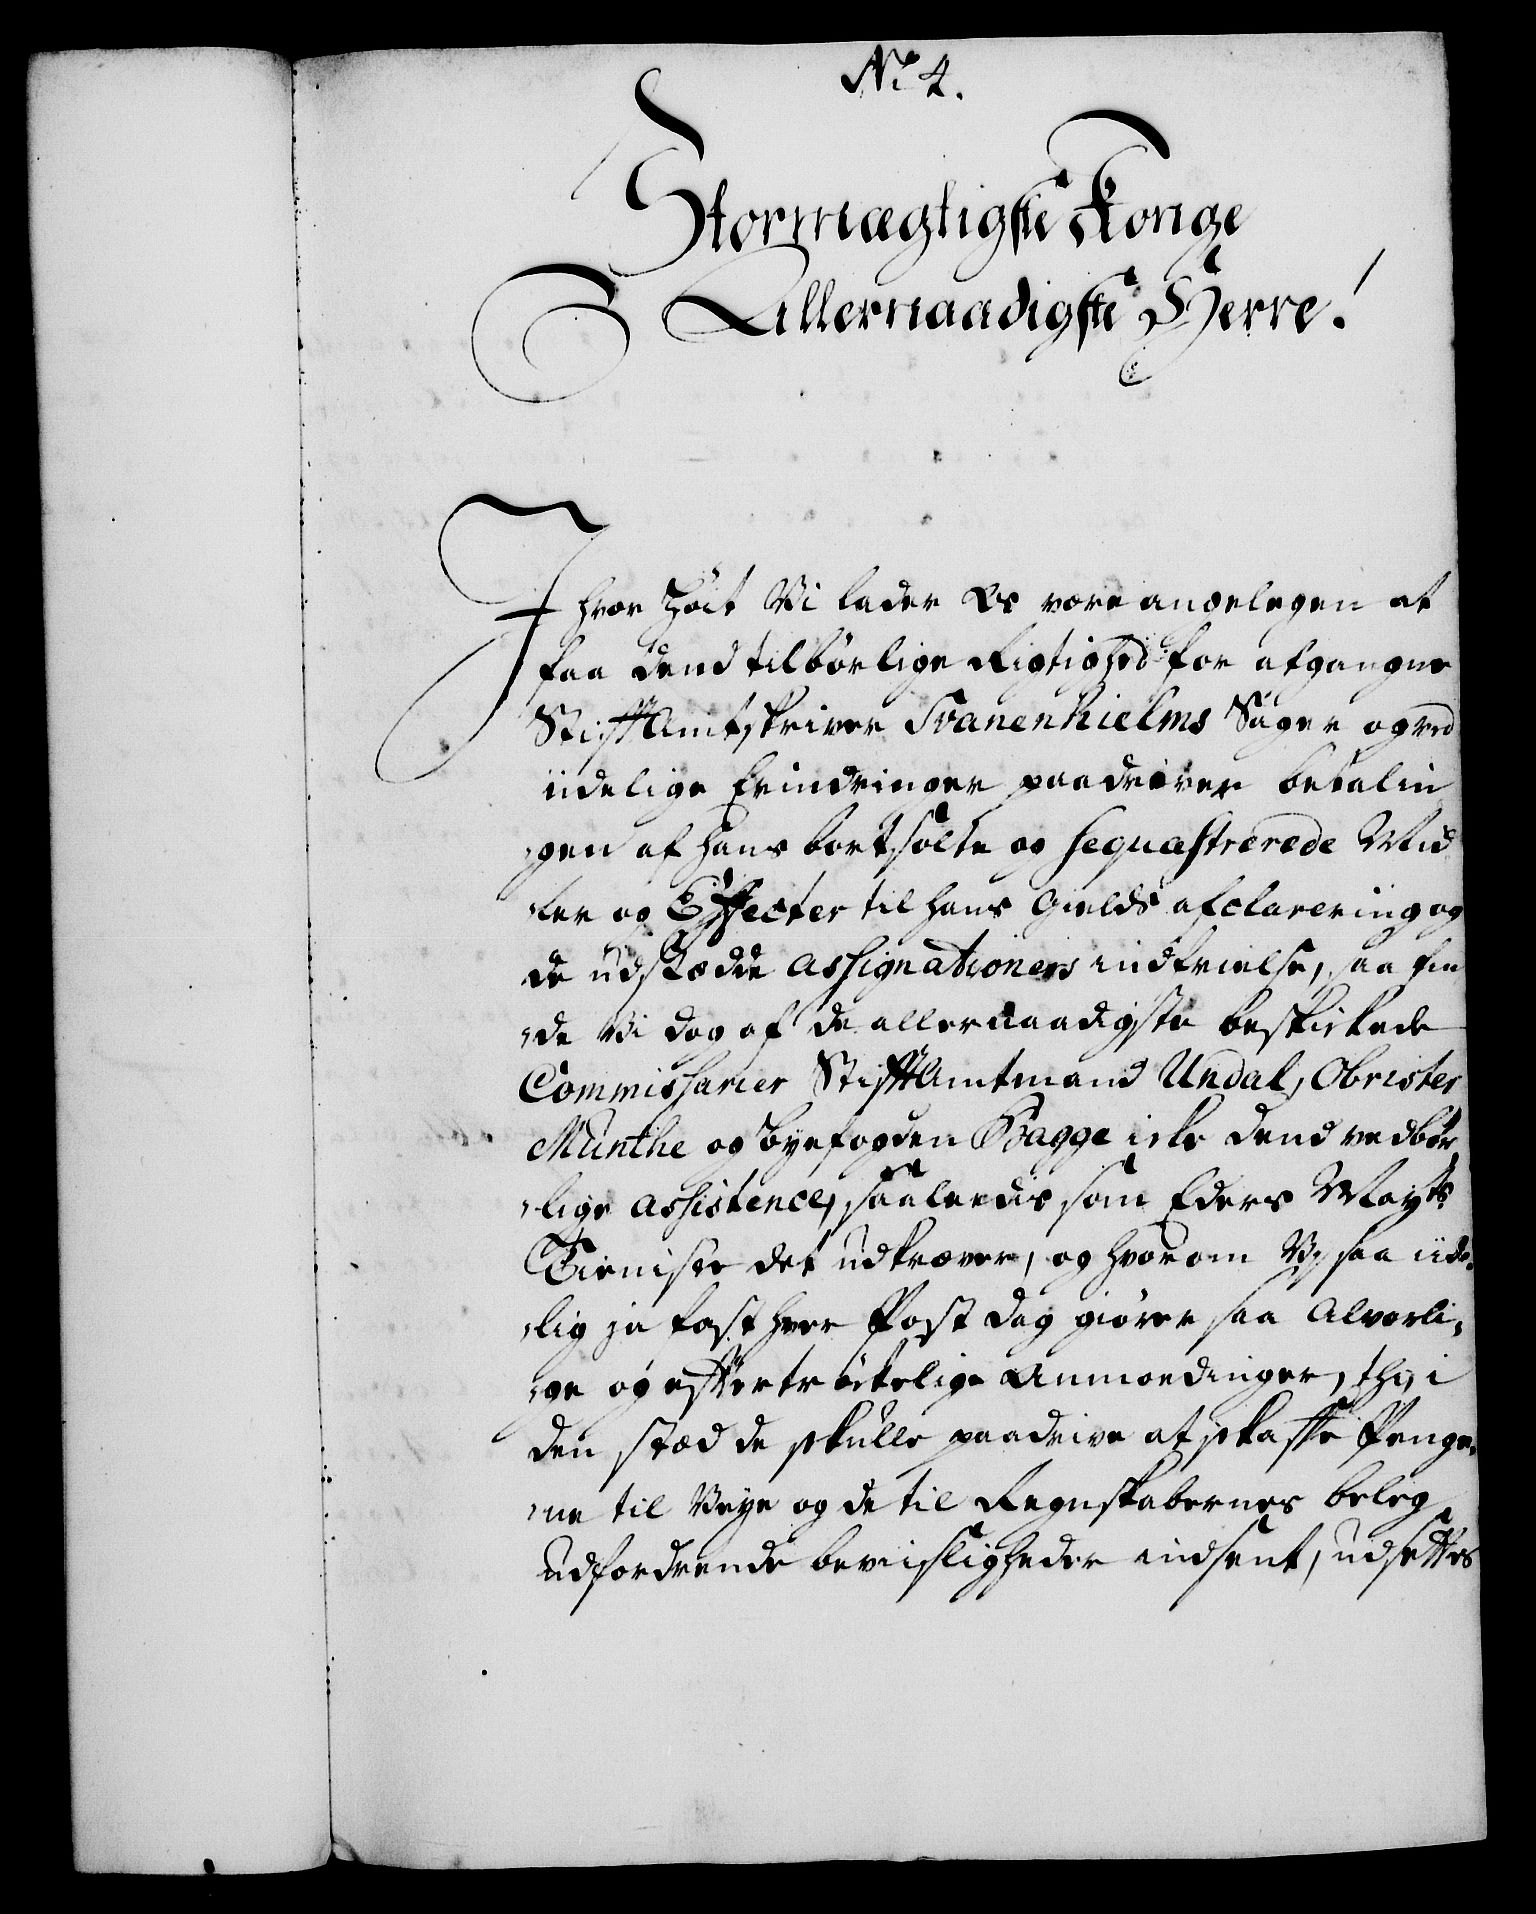 No 4.
Stormægtigste Konge
Allernaadigste Herre!
I hvor Høit Vi lader Os være angelegen at
faa dend tilbørlige Rigtighed for afgangne
StifftAmtskriver Svanenhielms Sager og ved
iidelige Erindringer paadriver betalin
-gen af hans bortsolte og seqvæstrerede Mid
-ler og Effecter til hans Gields afclarering og
de udstædde assignationers indfrielse, saa fin
-de Vi dog af de allernaadigste beskikkede
Commissarier StifftAmtmand Undal, Obrister
Munthe og Byefogden Bagge icke dend vedbør
-lige assistence, saaledis som Eders Mayts
Tieniste det udkræver, og hvorom Vi saa iide-
-lig ja fast hver Post dag giører saa Alvorli-
-ge og effertrøckelige Anmodninger, thi, i
den stæd de skulle paadrive at skaffe Penge-
-ne til Veye og de til Regnskabernes beleg
udfordrende beviisligheder indsent, udsettes